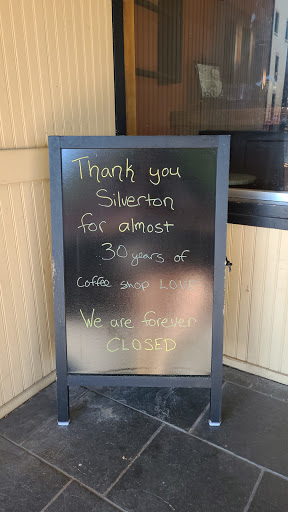 Thank you
Silverton
for almost
30 years of
Coffee shop LOVE
We are forever
CLOSED